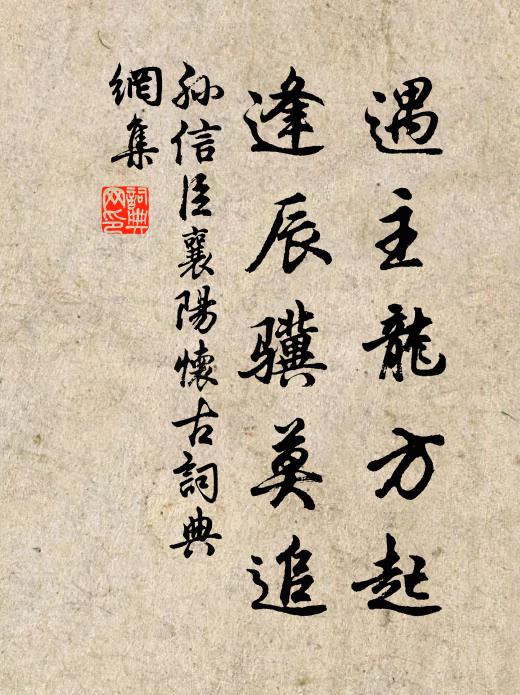 遇主龍方起
逢辰驥莫追
孙信臣襄陽懷古詞典
網集
詞典
网印